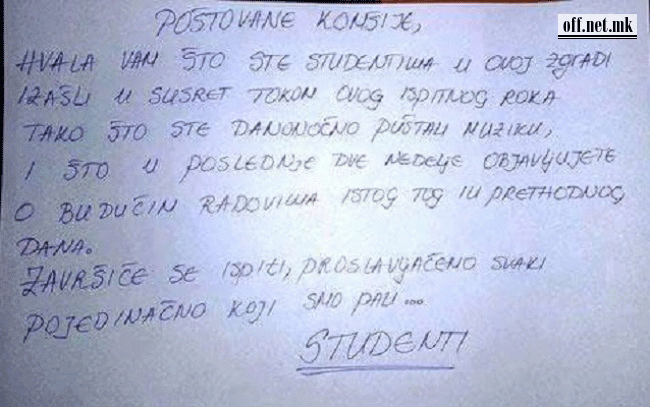 off.net.mk
POŠTOVANE KOMŠIJE,
HVALA VAM ŠTO STE STUDENTIMA U OVOJ ZGRADI
IZAŠLI U SUSRET TOKOM OVOG ISPITNOG ROKA
TAKO ŠTO STE DANONOĆNO PUŠTALI MUZIKU,
I ŠTO U POSLEDNJE DVE NEDELJE OBJAVLJUJETE
O BUDUĆIM RADOVIMA ISTOG TOG ILI PRETHODNOG
DANA.
ZAVRŠIĆE SE ISPITI, PROSLAVLJAĆEMO SVAKI
POJEDINAČNO KOJI SMO PALI...
STUDENTI